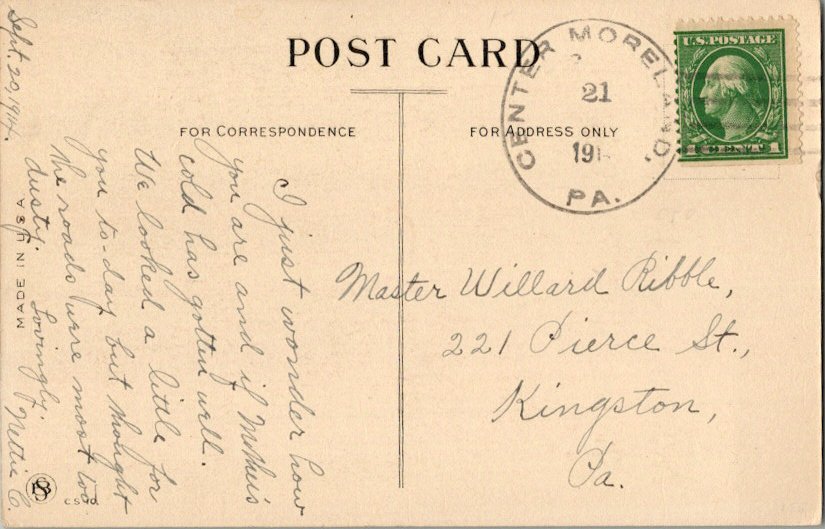 POST CARD
FOR CORRESPONDENCE
FOR ADDRESS ONLY
CENTER MORELAND,
21
191
PA.
U.S. POSTAGE
1 CENT 1
Sept. 20, 1914.
I just wonder how
you are and if Mother's
cold has gotten well.
We looked a little for
you to-day but thought
the roads were most too
dusty.
Lovingly,
Nettie C.
Master Willard Ribble,
221 Pierce St.,
Kingston,
Pa.
MADE IN USA